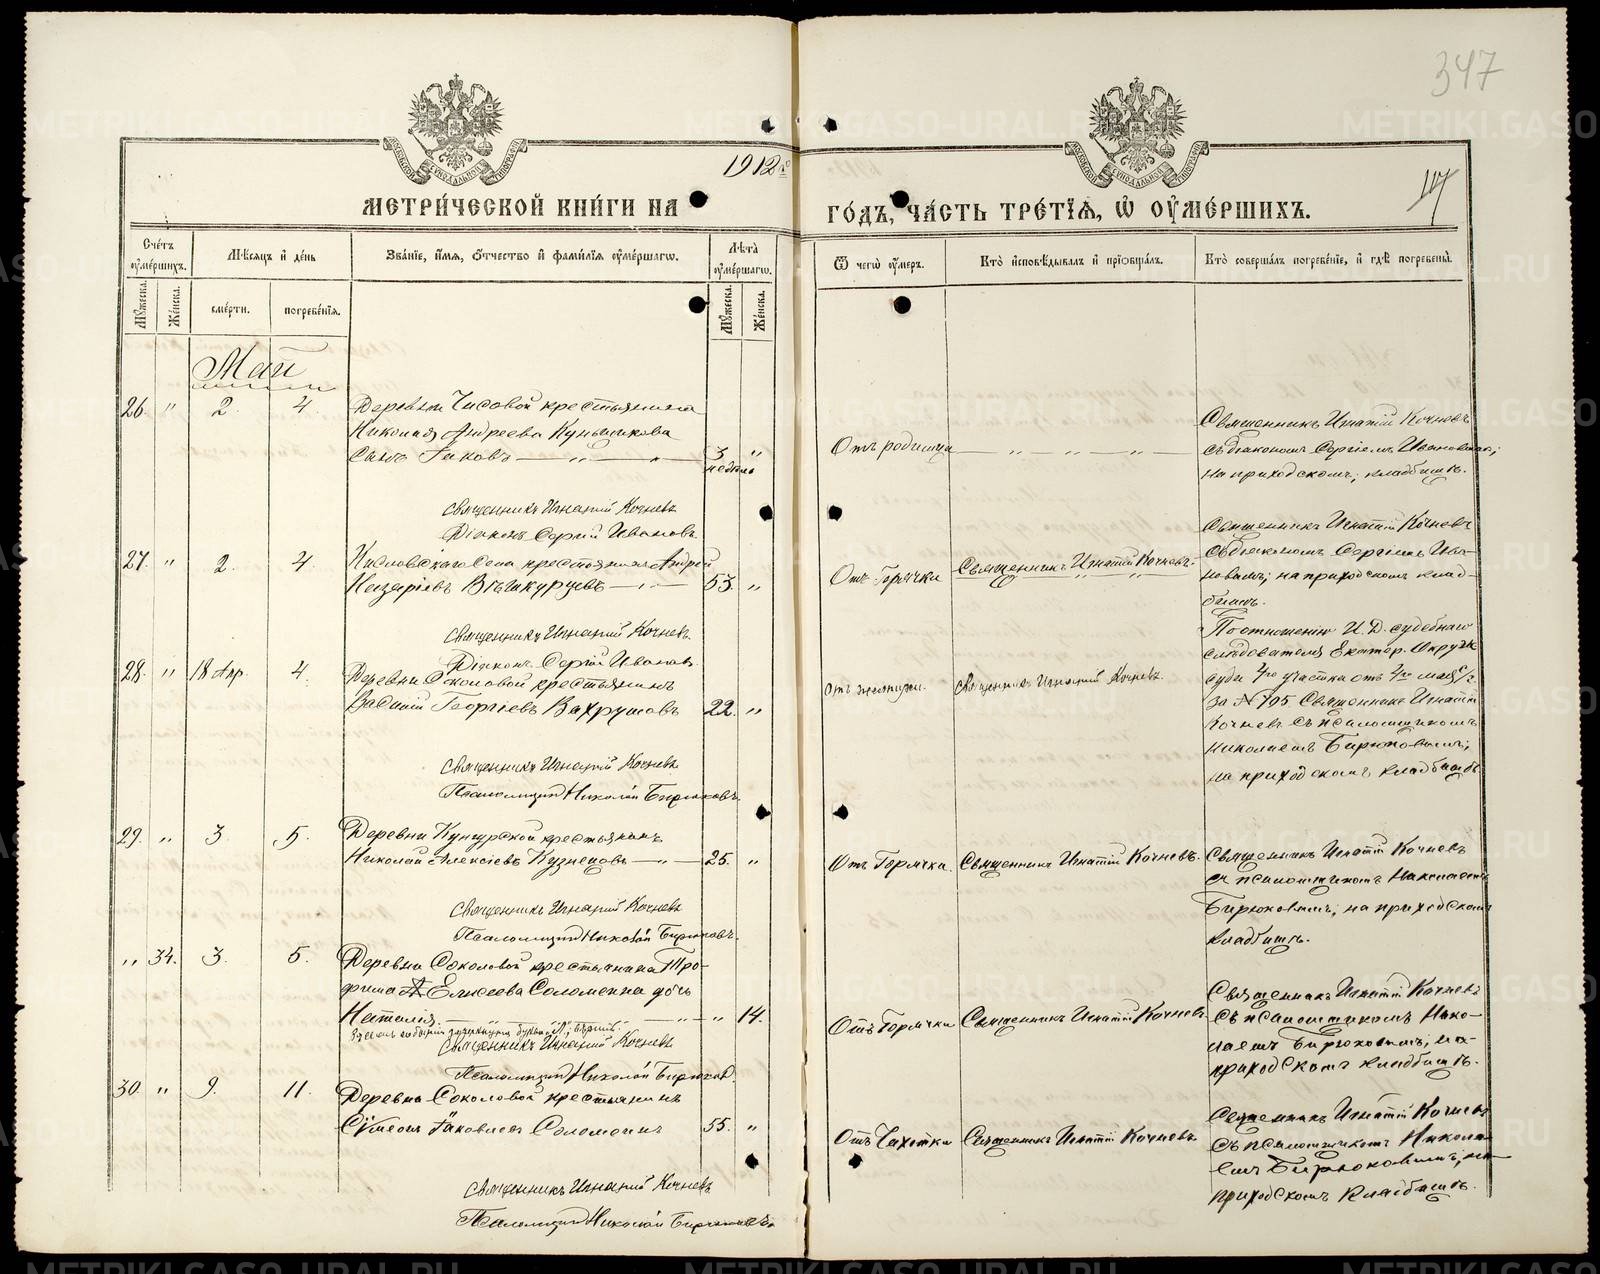 347
МОСКОВСКОЙ СѴНОДАЛЬНОЙ ТИПОГРАФІИ
МОСКОВСКОЙ СѴНОДАЛЬНОЙ ТИПОГРАФІИ
1912го
117
МЕТРИ́ЧЕСКОЙ КНИ́ГИ НА
ГО́ДЪ, ЧА́СТЬ ТРЕ́ТІѦ, Ѿ ОУ҆МЕ́РШИХЪ.
Сче́тъ ᲂу҆ме́ршихъ.
Мѣ́сяцъ и҆ де́нь
Зва́ніе, и҆́мя, ѻ҆́тчество и҆ фами́лія ᲂу҆ме́ршагѡ.
Лѣ́та ᲂу҆ме́ршагѡ.
Ѿ чегѡ̀ ᲂу҆́меръ.
Кто̀ и҆сповѣ́дывалъ и҆ прїѡбща́лъ.
Кто̀ соверша́лъ погребе́ніе, и҆ гдѣ̀ погребены̀.
Мꙋ́жеска.
Же́нска.
сме́рти.
погребе́нія.
Мꙋ́жеска.
Же́нска.
Май
26. " 2. 4.
Деревни Часовой крестьянина
Николая Андреева Куньщикова
сынъ Іаковъ — " — "
3 недѣли "
Отъ родимца
" " — " —
Священникъ Игнатій Кочневъ
съ діакономъ Сергіемъ Ивановымъ;
на приходскомъ кладбищѣ.
Священникъ Игнатій Кочневъ
Діаконъ Сергій Ивановъ.
27. " 2. 4
Кисловскаго села крестьянинъ Андрей
Назаріевъ Вышкурцевъ — " —
53. "
Отъ Горячки
Священникъ Игнатій Кочневъ.
Священникъ Игнатій Кочневъ
съ діакономъ Сергіемъ Ива-
новымъ; на приходскомъ клад-
бищѣ.
Священникъ Игнатій Кочневъ.
Діаконъ Сергій Ивановъ.
28. " 18 Апр. 4.
Деревни Соколовой крестьянинъ
Василій Георгіевъ Вахрушевъ
22. "
Священникъ Игнатій Кочневъ.
По отношенію И. Д. судебнаго
слѣдователя Екатер. Окруж.
суда 4го участка отъ 4го мая с/г.
за № 705 Священникъ Игнатій
Кочневъ съ псаломщикомъ
Николаемъ Бирюковымъ;
на приходскомъ кладбищѣ
Священникъ Игнатій Кочневъ.
Псаломщикъ Николай Бирюковъ.
29. " 3. 5.
Деревни Кунгурской крестьянинъ
Николай Алексіевъ Кузнецовъ — " —
25. "
Отъ Горячки.
Священникъ Игнатій Кочневъ.
Священникъ Игнатій Кочневъ
съ псаломщикомъ Николаемъ
Бирюковымъ; на приходскомъ
кладбищѣ.
Священникъ Игнатій Кочневъ
Псаломщикъ Николай Бирюковъ.
" 34. 3. 5.
Деревни Соколовой крестьянина Тро-
фима Елисеева Соломеина дочь
Наталія. — " — " —
" 14.
Отъ Горячки
Священникъ Игнатій Кочневъ.
Священникъ Игнатій Кочневъ
съ псаломщикомъ Нико-
лаемъ Бирюковымъ; на
приходскомъ кладбищѣ.
Священникъ Игнатій Кочневъ
Псаломщикъ Николай Бирюковъ.
30. " 9. 11.
Деревни Соколовой крестьянинъ
Сѵмеонъ Іаковлевъ Соломеинъ
55. "
Отъ Чахотки
Священникъ Игнатій Кочневъ
Священникъ Игнатій Кочневъ
съ псаломщикомъ Никола-
емъ Бирюковымъ; на
приходскомъ кладбищѣ.
Священникъ Игнатій Кочневъ
Псаломщикъ Николай Бирюковъ.
METRIKI.GASO-URAL.RU